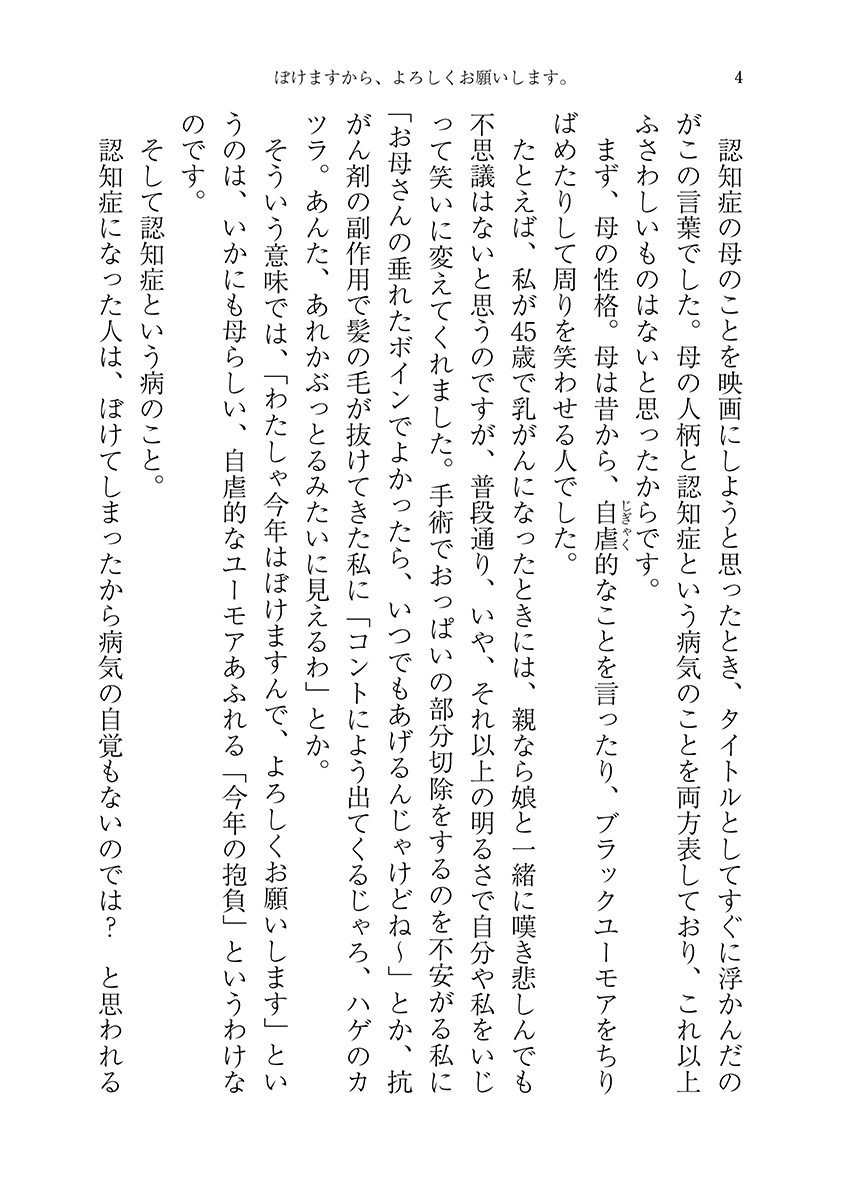 ぼけますから、よろしくお願いします。
4
認知症の母のことを映画にしようと思ったとき、タイトルとしてすぐに浮かんだの
がこの言葉でした。母の人柄と認知症という病気のことを両方表しており、これ以上
ふさわしいものはないと思ったからです。
まず、母の性格。母は昔から、自虐的なことを言ったり、ブラックユーモアをちり
じぎゃく
ばめたりして周りを笑わせる人でした。
たとえば、私が45歳で乳がんになったときには、親なら娘と一緒に嘆き悲しんでも
不思議はないと思うのですが、普段通り、いや、それ以上の明るさで自分や私をいじ
って笑いに変えてくれました。手術でおっぱいの部分切除をするのを不安がる私に
「お母さんの垂れたボインでよかったら、いつでもあげるんじゃけどね〜」とか、抗
がん剤の副作用で髪の毛が抜けてきた私に「コントによう出てくるじゃろ、ハゲのカ
ツラ。あんた、あれかぶっとるみたいに見えるわ」とか。
そういう意味では、「わたしゃ今年はぼけますんで、よろしくお願いします」とい
うのは、いかにも母らしい、自虐的なユーモアあふれる「今年の抱負」というわけな
のです。
そして認知症という病のこと。
認知症になった人は、ぼけてしまったから病気の自覚もないのでは？　と思われる